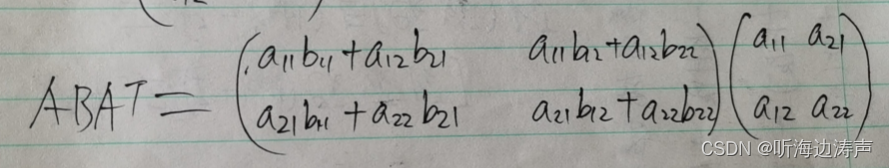 ABAᵀ = (a₁₁b₁₁+a₁₂b₂₁ a₁₁b₁₂+a₁₂b₂₂) (a₁₁ a₂₁)
(a₂₁b₁₁+a₂₂b₂₁ a₂₁b₁₂+a₂₂b₂₂) (a₁₂ a₂₂)
CSDN @听海边涛声